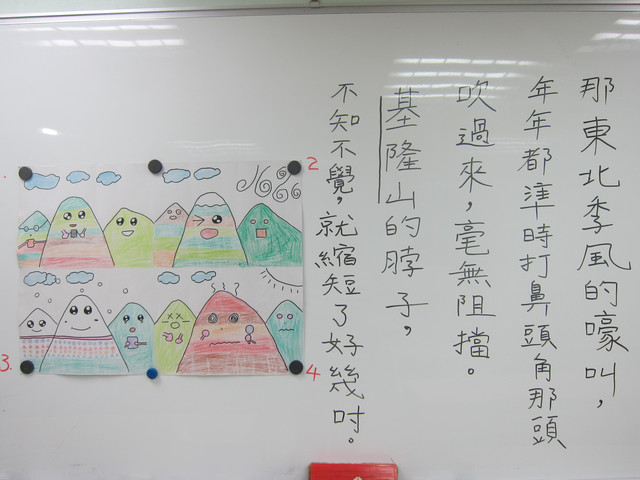 那東北季風的嚎叫，
年年都準時打鼻頭角那頭
吹過來，毫無阻擋。
基隆山的脖子，
不知不覺，就縮短了好幾吋。
2
3.
4